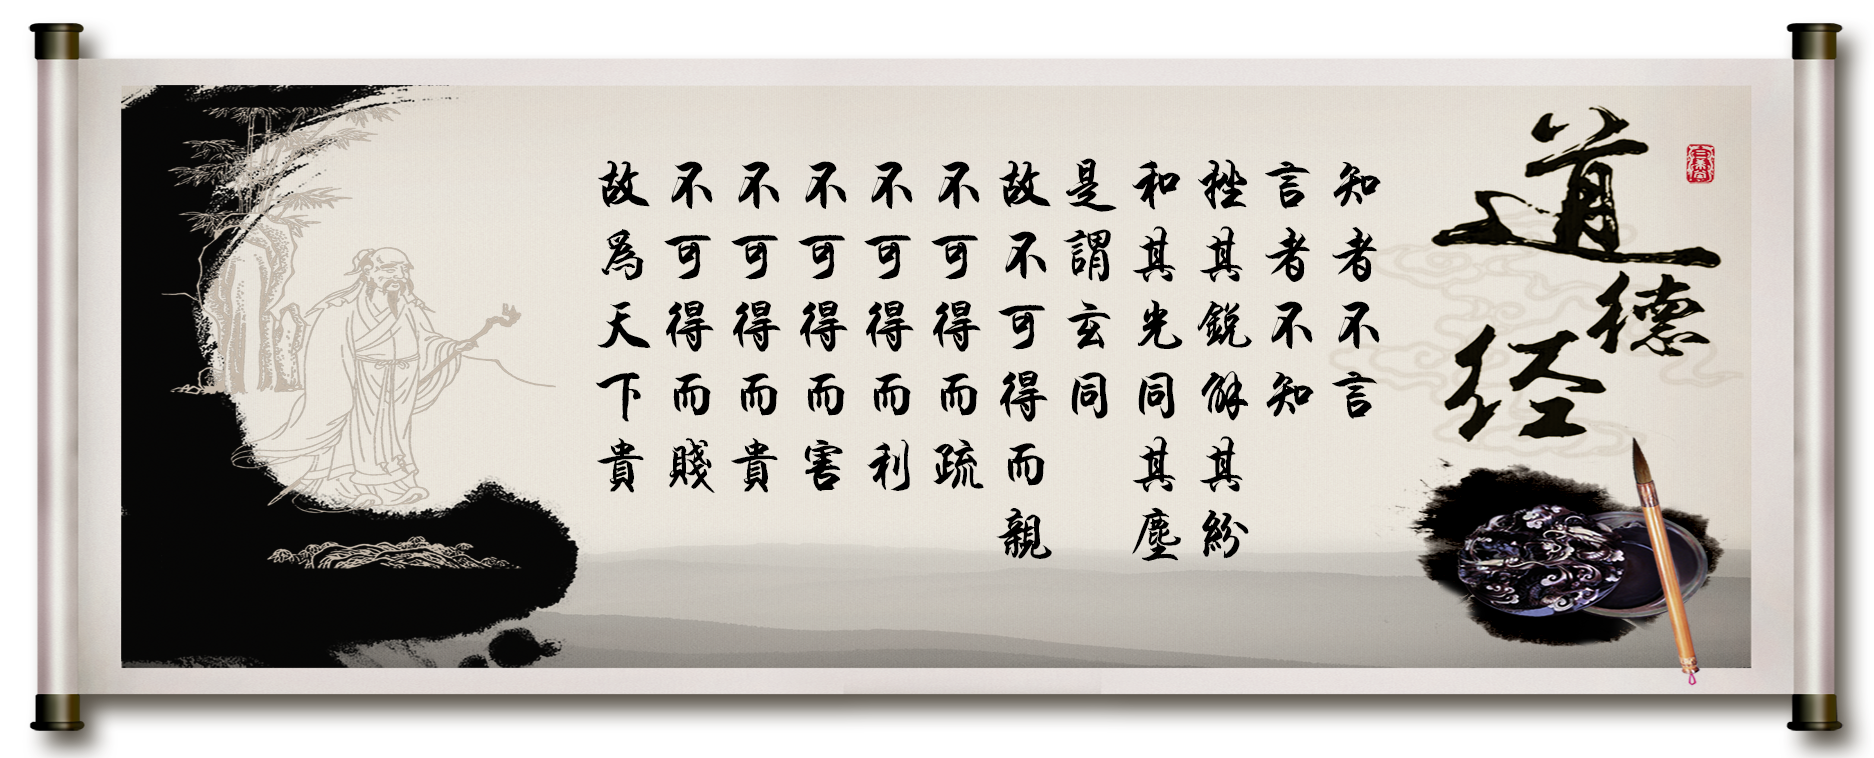 道德经
知者不言
言者不知
挫其鋭解其紛
和其光同其塵
是謂玄同
故不可得而親
不可得而疏
不可得而利
不可得而害
不可得而貴
不可得而賤
故爲天下貴